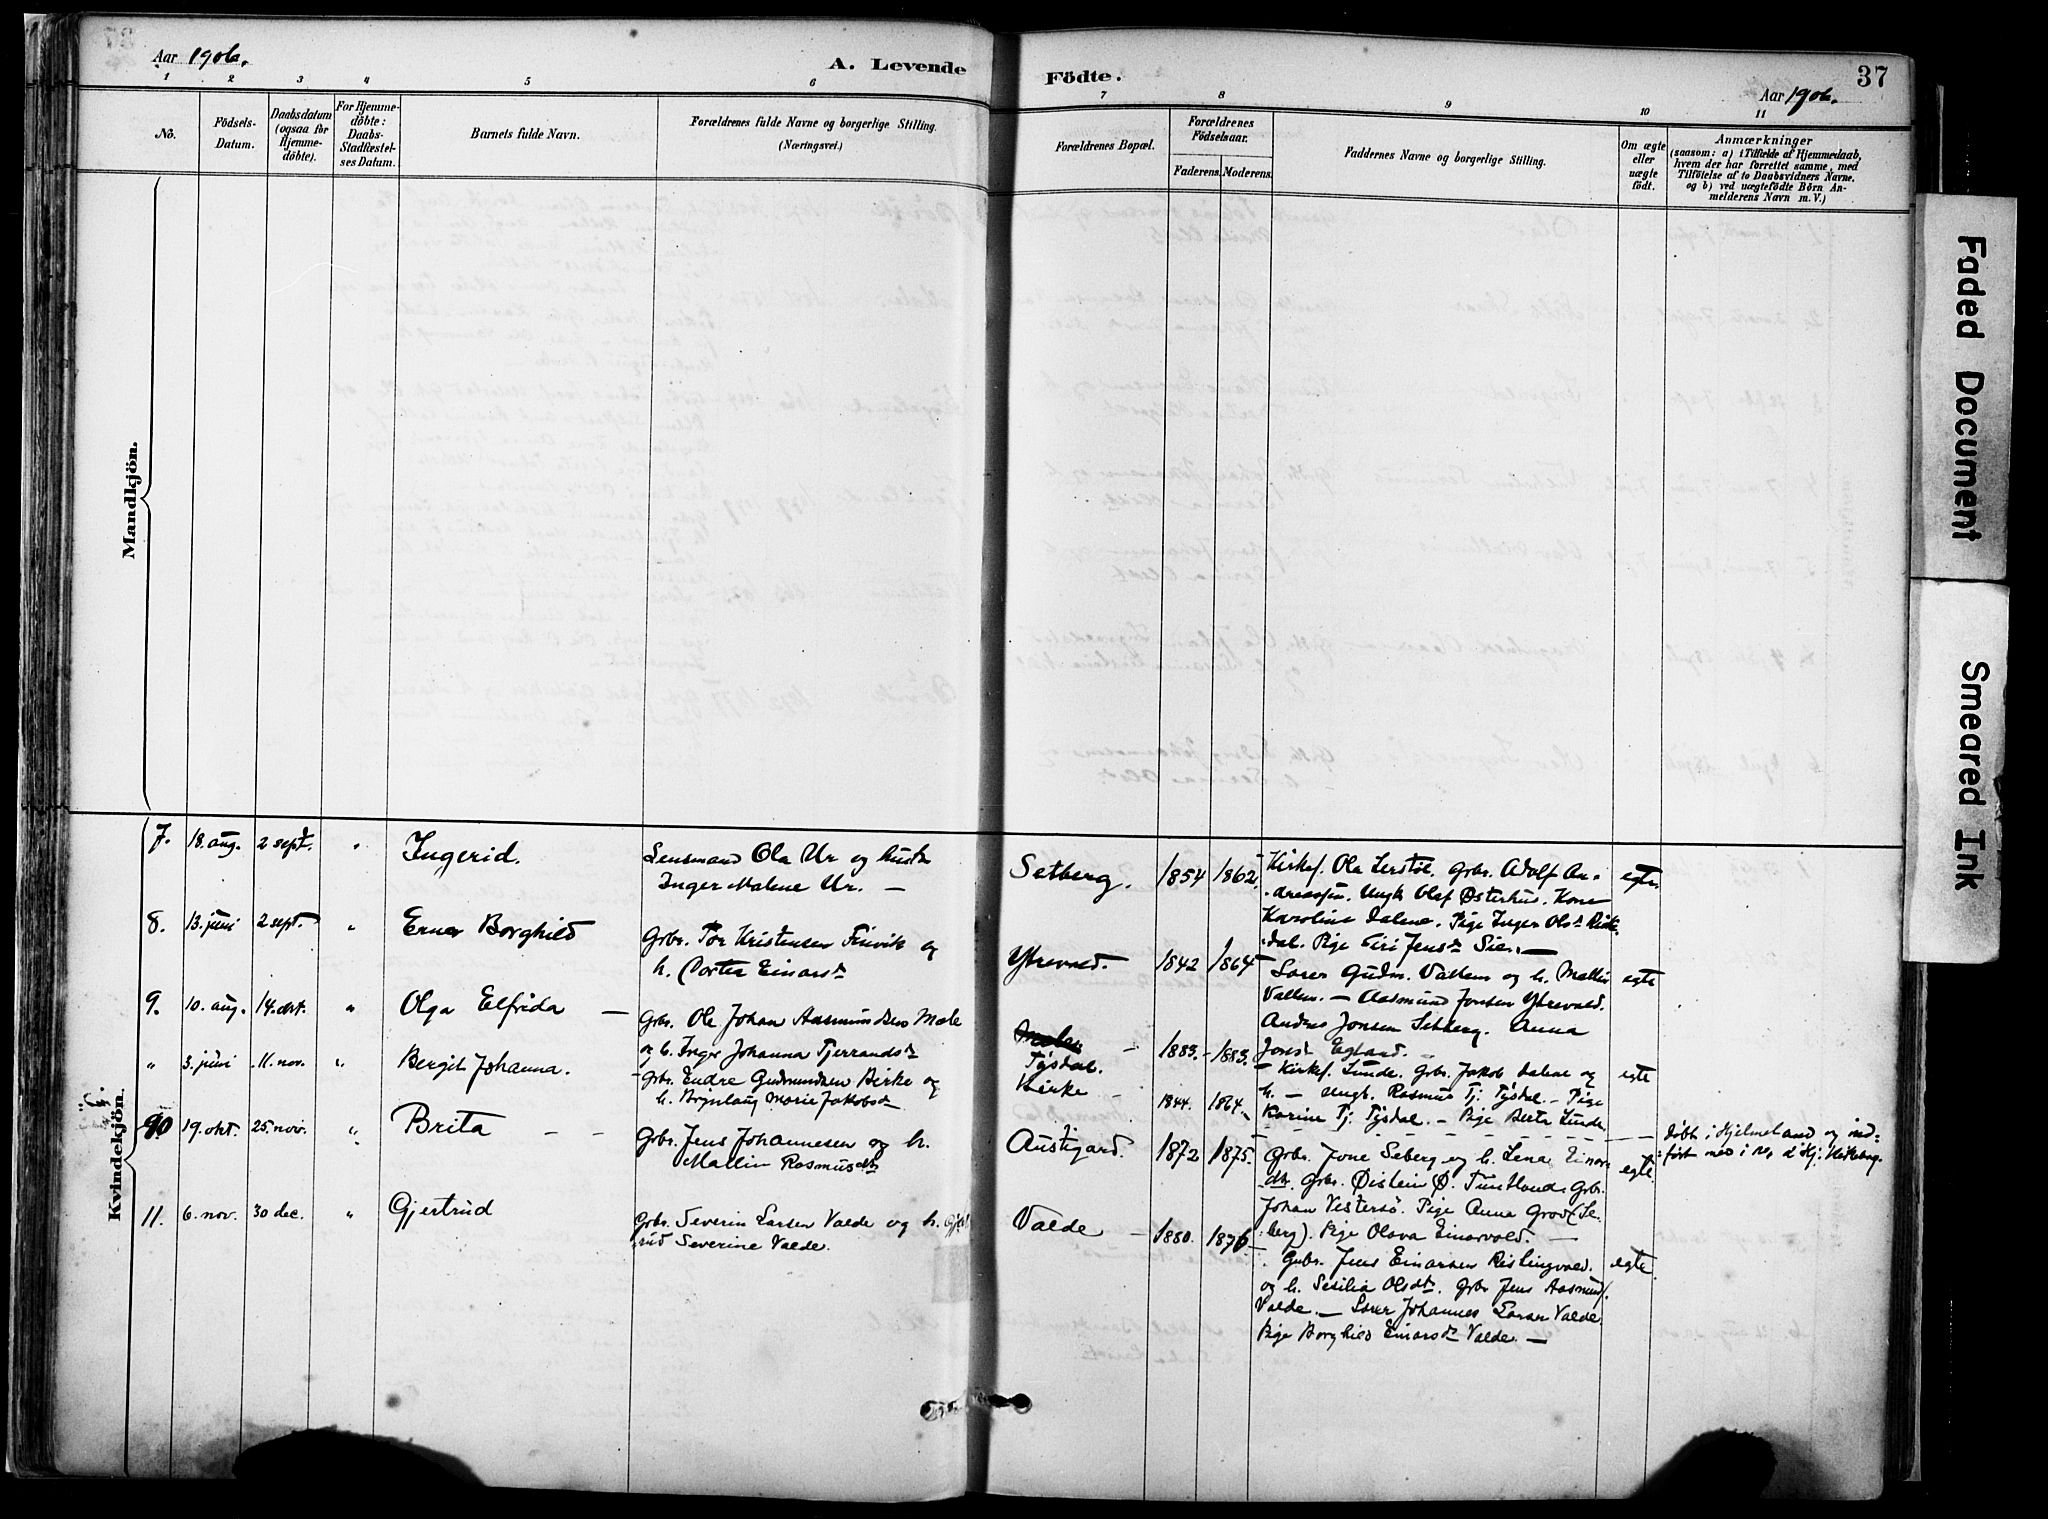 Aar 1906.
A. Levende
Födte.
37
Aar 1906.
1 2 3 4 5 6 7 8 9 10 11
No.
Födsels-
Datum.
Daabsdatum
(ogsaa for
Hjemme-
döbte).
For Hjemme-
döbte:
Daabs-
Stadfæstel-
ses Datum.
Barnets fulde Navn.
Forældrenes fulde Navne og borgerlige Stilling.
(Næringsvei.)
Forældrenes Bopæl.
Forældrenes
Födselsaar.
Faderens. Moderens.
Faddernes Navne og borgerlige Stilling.
Om ægte
eller
uægte
födt.
Anmærkninger
(saasom: a) i Tilfælde af Hjemmedaab,
hvem der har forrettet samme, med
Tilföielse af to Daabsvidners Navne,
og b) ved uægtefödte Börn An-
melderens Navn m. V.)
Mandkjön.
Kvindekjön.
7. 18. aug. 2 sept. " Ingerid.
Lensmand Ola Ur og hustr
Inger Malene Ur. —
Setberg. 1854 1862.
Kirkes. Ola Lerstöl. Gbr. Adolf An-
dreassen. Ungk Olaf Østerhus. Kone
Karoline Dalene. Pige Inger Olsdt
dal. Pige Siri Jensdt —
egte
8. 13. juni 2 sept. " Erna Borghild
Gbr. Tor Kristensen og
h. Einarsdt
Ytrevold. 1842 1864
Gudm. Vallem og h. Mallin
Vallem. — Aasmund Jonsen Ytrevold.
Andres Jonsen Setberg. Anna
Jonsdt Egland. —
egte
9. 10. aug. 14. okt. " Olga Elfrida —
Gbr. Ole Johan Aasmundsen Mæle
og h. Inger Johanna Tjerrandsdt
Tysdal. 1883. - 1883.
— Kirkes. Lunde. Gbr. Jakob Dalene og
h. — Ungk. Rasmus Tj. Tysdal. — Pige
Karine Tj. Tysdal. — Pige Berta Lunde
egte
" 3. juni 11. nov. " Bergit Johanna.
Gbr. Endre Gudmundsen Birke og
h. Brynlaug Marie Jakobsdt
Birke 1844. 1864.
Döbt i Hjelmeland og ind-
fört med i No. i Hj. Kirkebog.
10 19. okt. 25. nov. " Brita — —
Gbr. Jens Johannesen og h.
Mallin Rasmusdt
Austigard. 1872 1875.
Gbr. Jone Seberg og h. Lena Einars
dt. Gbr. Øistein Ø. Tuntland. Gbr.
Johan Vestersö. Pige Anna Grov (Se-
berg). Pige Olava Einarvold. —
egte.
11. 6. nov. 30 dec. " Gjertrud
Gbr. Severin Larsen Valde og h. Gjert
rud Severine Valde.
Valde — 1880. 1876.
Gbr. Jens Einarsen Ristingvold.
og h. Sesilia Olsdt. Gbr Jens Aasmund
Valde. — Johannes Larsen Valde
Pige Borghild Einarsdt Valde. —
egte.
Faded Document
Smeared Ink